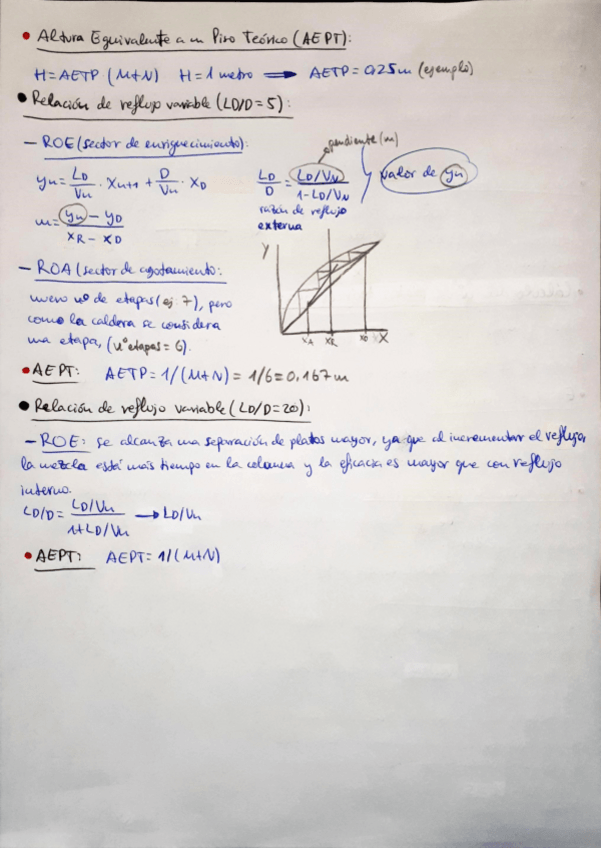 • Altura Equivalente a un Piso Teórico (AEPT):
H = AETP (M+N) H = 1 metro → AETP = 0,25m (ejemplo)
• Relación de reflujo variable (LD/D = 5):
- ROE (sector de enriquecimiento):
yn = LD/Vn · Xn+1 + D/Vn · XD
LD/D = LD/Vn / 1 - LD/Vn
pendiente (m)
valor de yn
razón de reflujo
externa
m = yn - yD / XR - XD
- ROA (sector de agotamiento:
nuevo nº de etapas (ej: 7), pero
como la caldera se considera
una etapa, (nº etapas = 6).
Y
XA XR XD X
• AEPT: AETP = 1/(M+N) = 1/6 = 0,167 m
• Relación de reflujo variable (LD/D = 20):
- ROE: se alcanza una separación de platos mayor, ya que al incrementar el reflujo,
la mezcla está más tiempo en la columna y la eficacia es mayor que con reflujo
interno.
LD/D = LD/Vn / 1+LD/Vn → LD/Vn
• AEPT: AEPT = 1/(M+N)